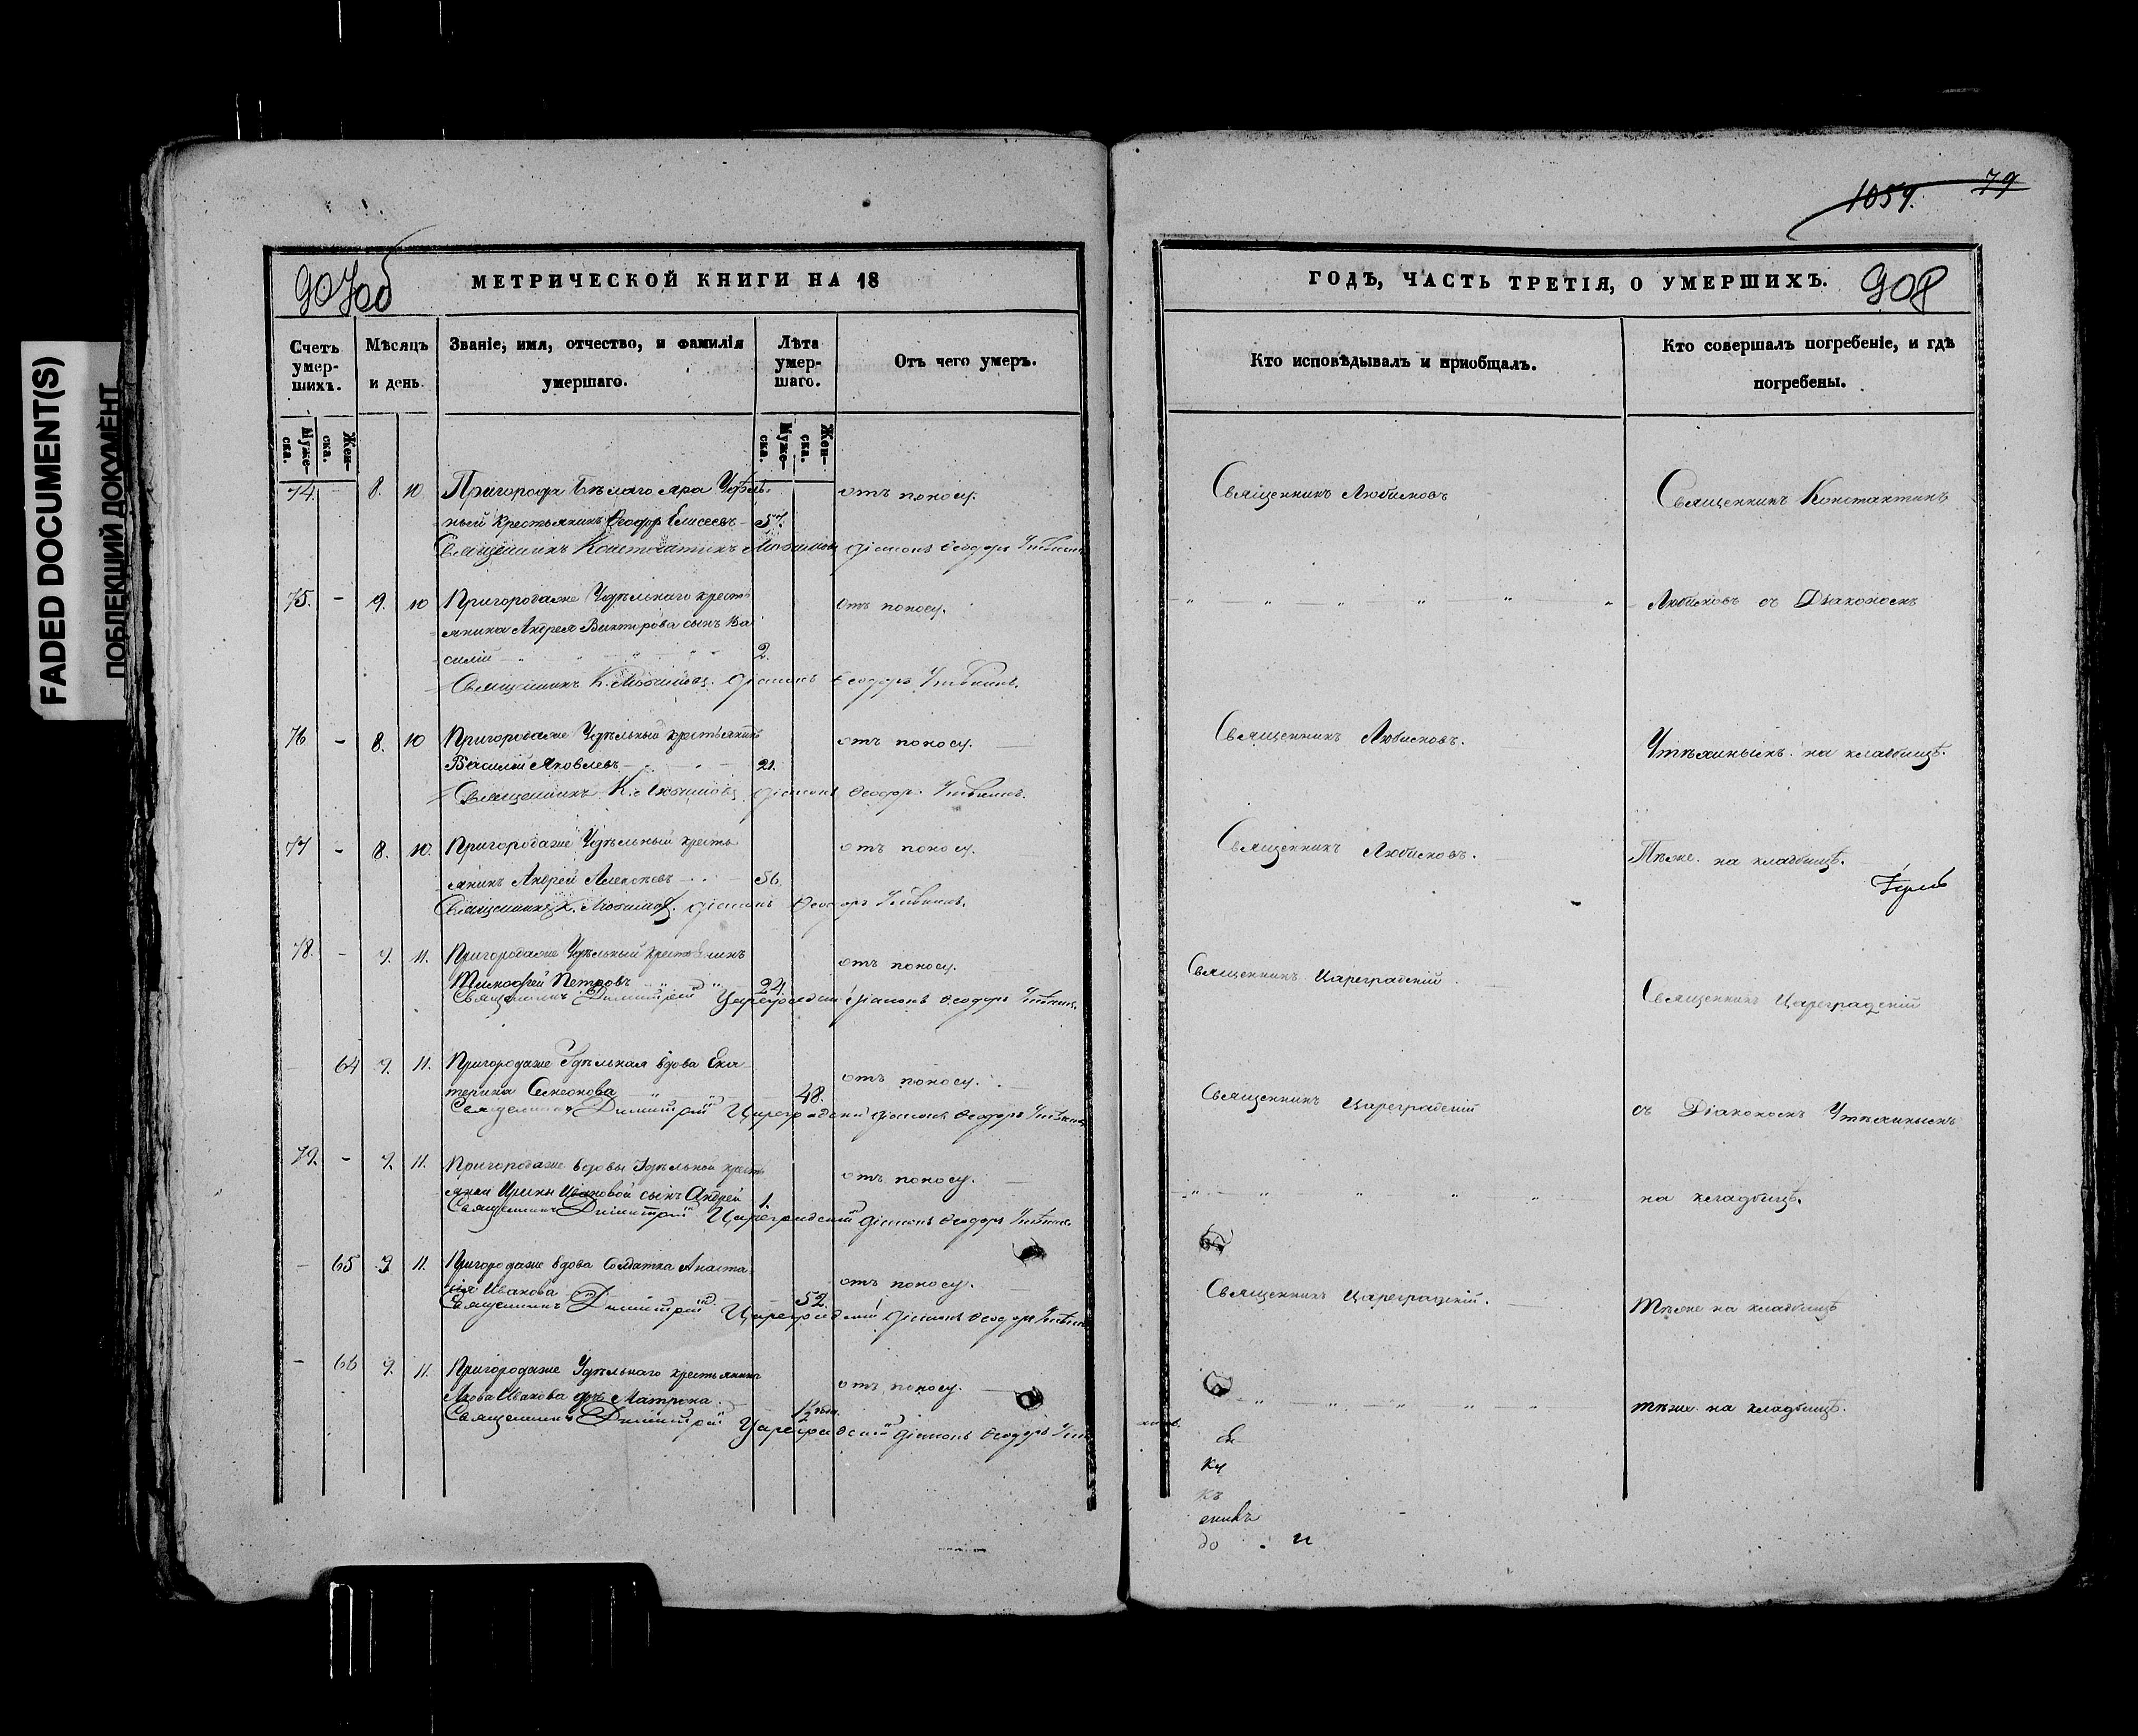 FADED DOCUMENT(S)
ПОБЛЕКШИЙ ДОКУМЕНТ
907об
МЕТРИЧЕСКОЙ КНИГИ НА 18
Счетъ умер-шихъ.
Мѣсяцъ и день.
Званіе, имя, отчество, и фамилія умершаго.
Лѣта умер-шаго.
Отъ чего умеръ.
Муже-ска.
Жен-ска.
Муже-ска.
Жен-ска.
74. - 8. 10. Пригорода Бѣлаго Яра Удѣль-
ный крестьянинъ Ѳеодоръ Елисеевъ 57. отъ поносу.
Священникъ Константинъ Любимовъ Діаконъ Ѳеодоръ
75. - 9. 10 Пригородаже Удѣльнаго кресть
янина Андрея Викторова сынъ Ва
силій 2. отъ поносу.
Священникъ К. Любимовъ. Діаконъ Ѳеодоръ Утѣхинъ.
76 - 8. 10 Пригородаже Удѣльный крестьянинъ
Василій Яковлевъ 21. отъ поносу.
Священникъ К. Любимовъ Діаконъ Ѳеодоръ Утѣхинъ.
77 - 8. 10. Пригородаже Удѣльный кресть
янинъ Андрей Алексѣевъ 56. отъ поносу.
Священникъ К. Любимовъ. Діаконъ Ѳеодоръ Утѣхинъ.
78. - 9. 11. Пригородаже Удѣльный крестьянинъ
Тимофей Петровъ 24. отъ поносу.
Священникъ Димитрій Цареградскій Діаконъ Ѳеодоръ Утѣхинъ.
64 9. 11. Пригородаже Удѣльная вдова Ека
терина Семенова 48. отъ поносу.
Священникъ Димитрій Цареградскій Діаконъ Ѳеодоръ Утѣхинъ
79. - 9. 11. Пригородаже вдовы Удѣльной кресть
янки Ирины Ивановой сынъ Андрей 1. отъ поносу.
Священникъ Димитрій Цареградскій Діаконъ Ѳеодоръ Утѣхинъ.
- 65 9 11. Пригородаже вдова Солдатка Анаста
сія Иванова 52. отъ поносу.
Священникъ Димитрій Цареградскій Діаконъ Ѳеодоръ Утѣхинъ
- 66 9. 11. Пригородаже Удѣльнаго крестьянина
Якова Иванова дочь Матрона 1/2 отъ поносу.
Священникъ Димитрій Цареградскій Діаконъ Ѳеодоръ
1059. 79
ГОДЪ, ЧАСТЬ ТРЕТІЯ, О УМЕРШИХЪ. 908
Кто исповѣдывалъ и приобщалъ.
Кто совершалъ погребеніе, и гдѣ погребены.
Священникъ Любимовъ
Священникъ Константинъ
Любимовъ съ Діакономъ
Священникъ Любимовъ.
Утѣхинымъ на кладбищѣ.
Священникъ Любимовъ.
Тѣже на кладбищѣ.
Священникъ Цареградскій
Священникъ Цареградскій
Священникъ Цареградскій
съ Діакономъ Утѣхинымъ
на кладбищѣ.
Священникъ Цареградскій.
тѣже на кладбищѣ
тѣже на кладбищѣ.